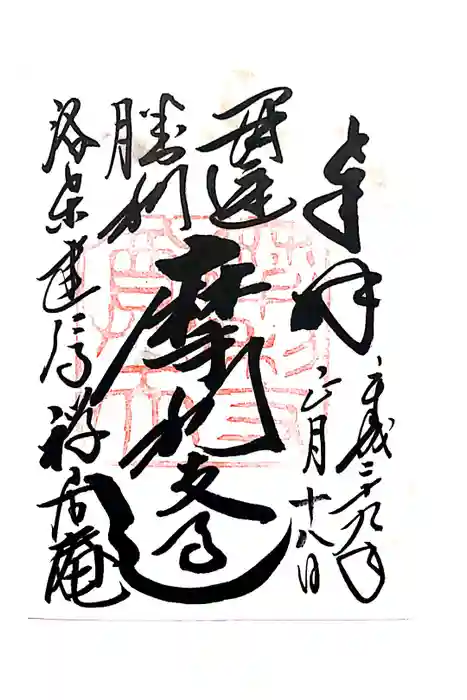 奉拝
平成二十九年
正月十八日
開運
勝利
摩利支天
洛東建仁寺禅居庵